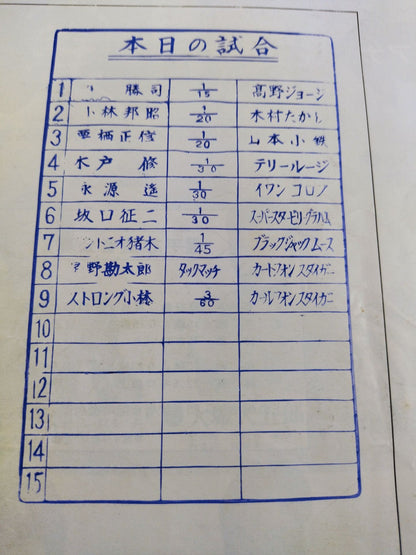 本日の試合
1 勝司 1/15 髙野ジョージ
2 小林邦昭 1/20 木村たかし
3 栗栖正信 1/20 山本小鉄
4 木戸修 1/30 テリールージ
5 永源遥 1/30 イワンコロフ
6 坂口征二 1/30 スーパースタービリーグラハム
7 アントニオ猪木 1/45 ブラックジャックムース
8 星野勘太郎 タッグマッチ カートフォンスタイガー
9 ストロング小林 3/60 カールフォンスタイガー
10
11
12
13
14
15